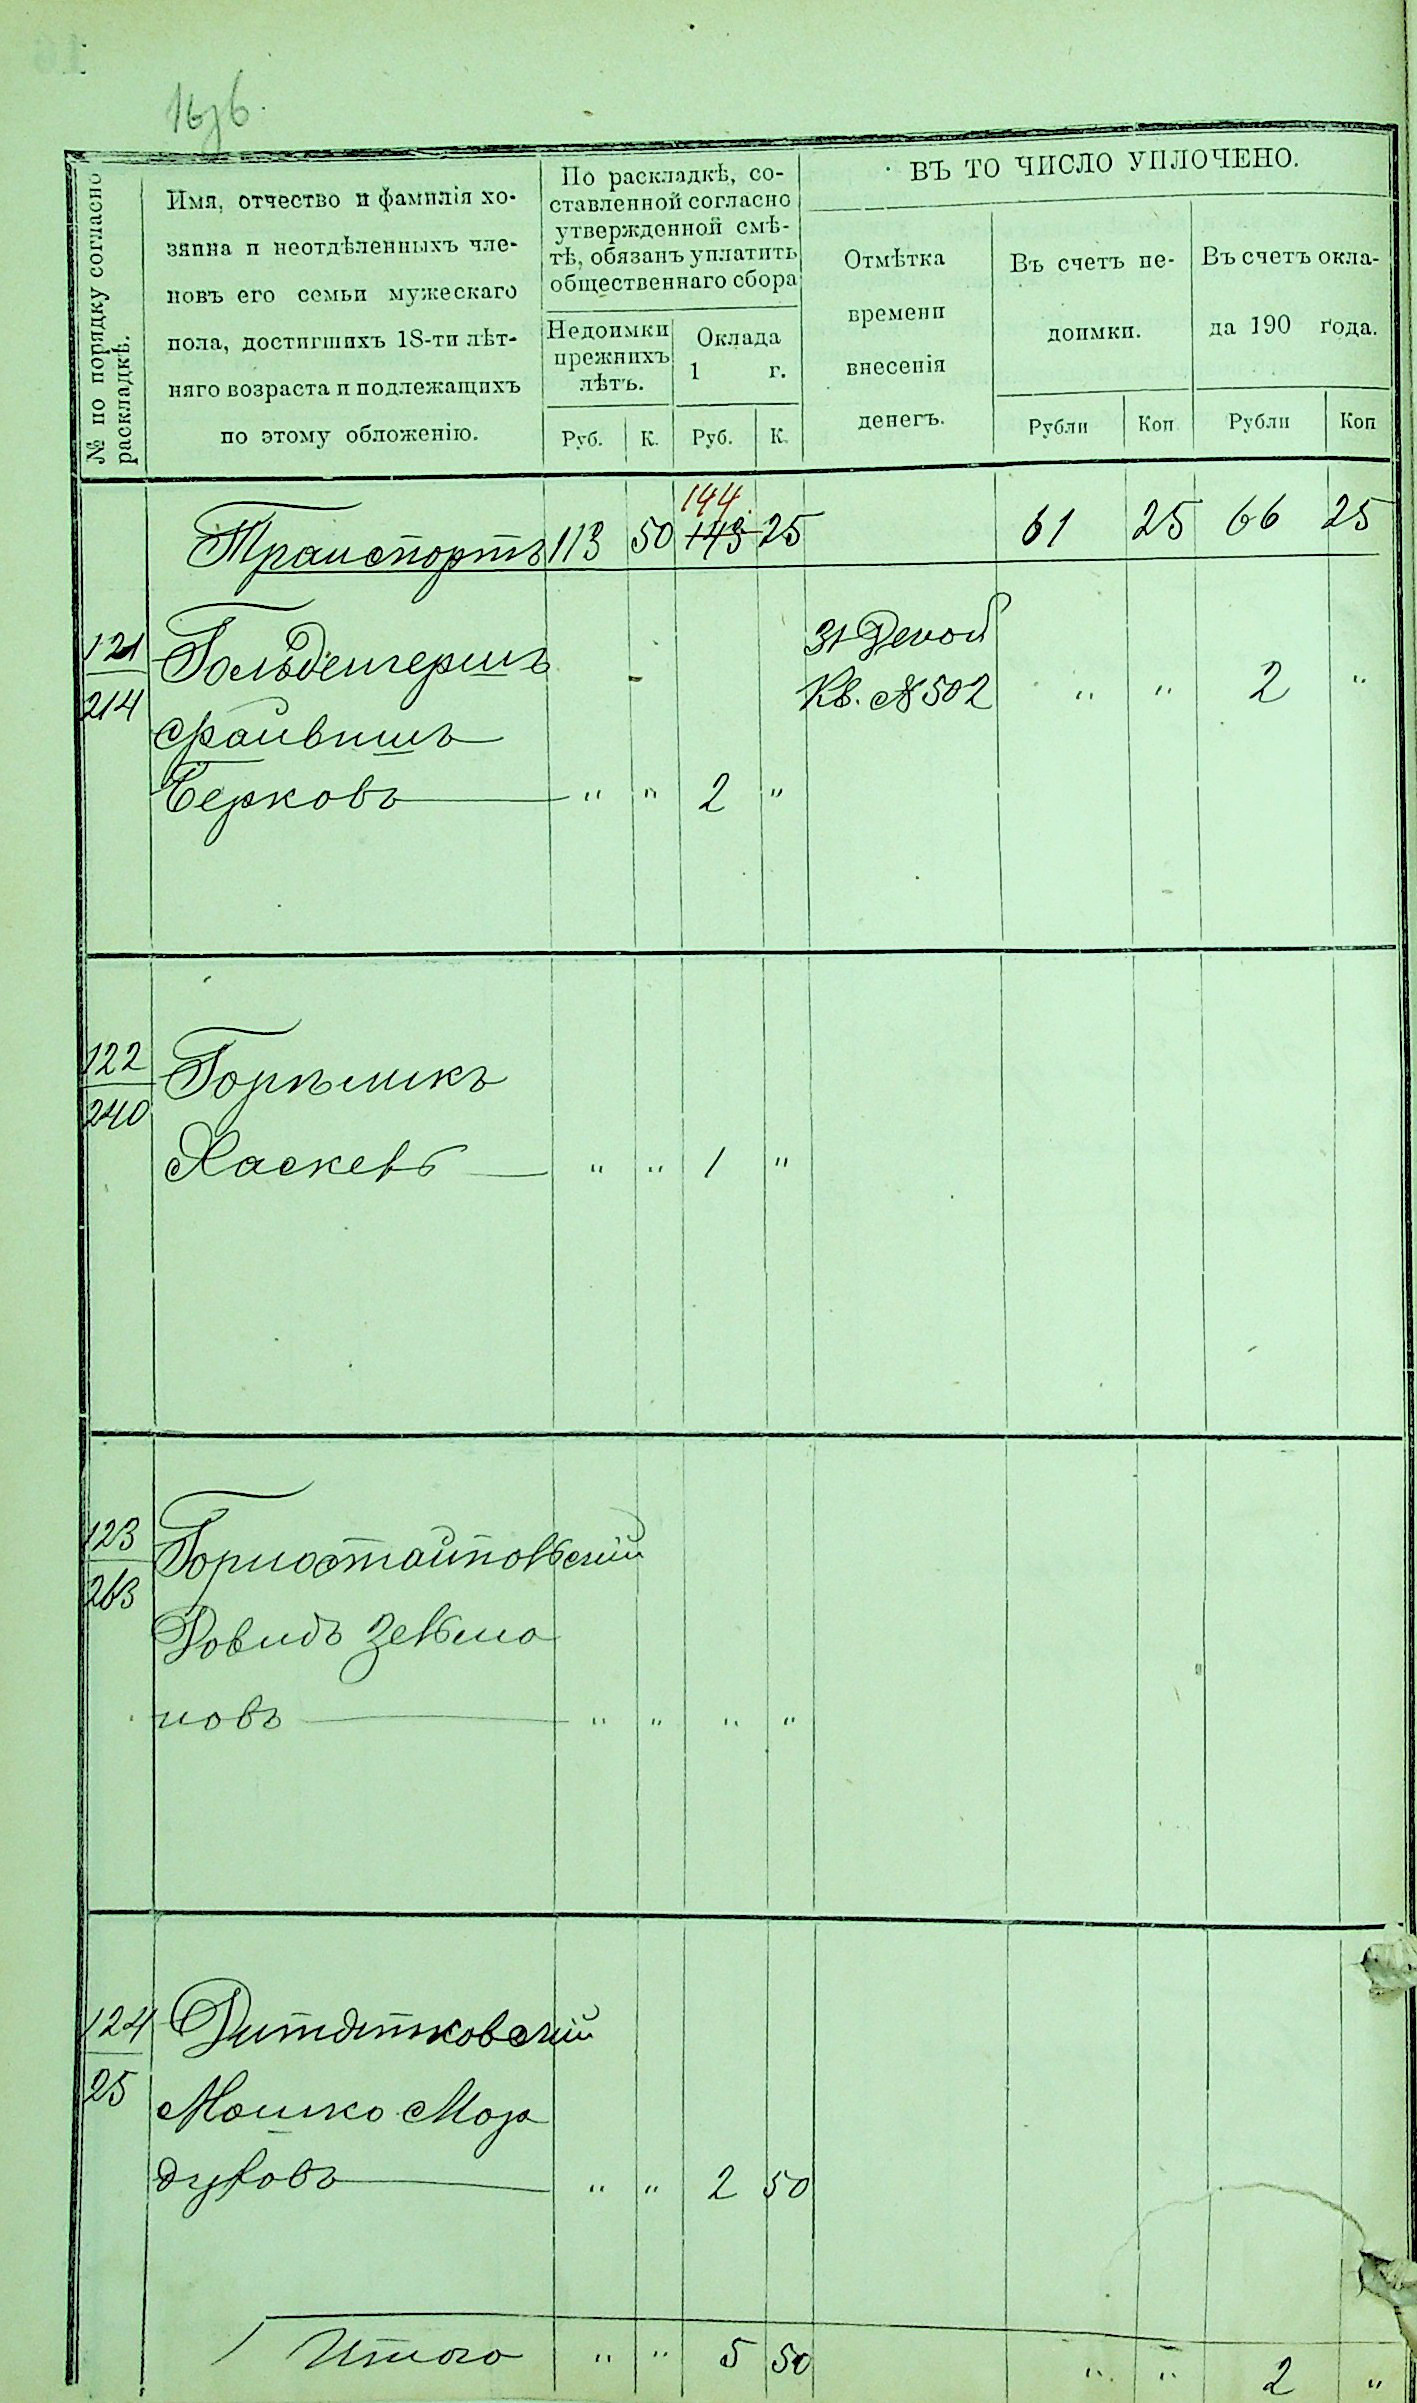 16об.
№ по порядку согласно раскладкѣ.
Имя, отчество и фамилія хо-
зяина и неотдѣленныхъ чле-
новъ его семьи мужескаго
пола, достигшихъ 18-ти лѣт-
няго возраста и подлежащихъ
по этому обложенію.
По раскладкѣ, со-
ставленной согласно
утвержденной смѣ-
тѣ, обязанъ уплатить
общественнаго сбора
Недоимки
прежнихъ
лѣтъ.
Оклада
1 г.
Руб. К. Руб. К.
ВЪ ТО ЧИСЛО УПЛОЧЕНО.
Отмѣтка
времени
внесенія
денегъ.
Въ счетъ не-
доимки.
Въ счетъ окла-
да 190 года.
Рубли Коп Рубли Коп
144
Транспортъ 113 50 143 25 61 25 66 25
121 Гольденгершъ 31 Декаб
214 Кв. № 502 " " 2 "
Файвишъ
Берковъ " " 2 "
122 Горѣликъ
240
Хаскель " " 1 "
123 Горностайпольскій
263
Довидъ Зельма
новъ " " " "
124 Дитятковскій
25
Мошко Мор
духовъ " " 2 50
Итого " " 5 50 " " 2 "